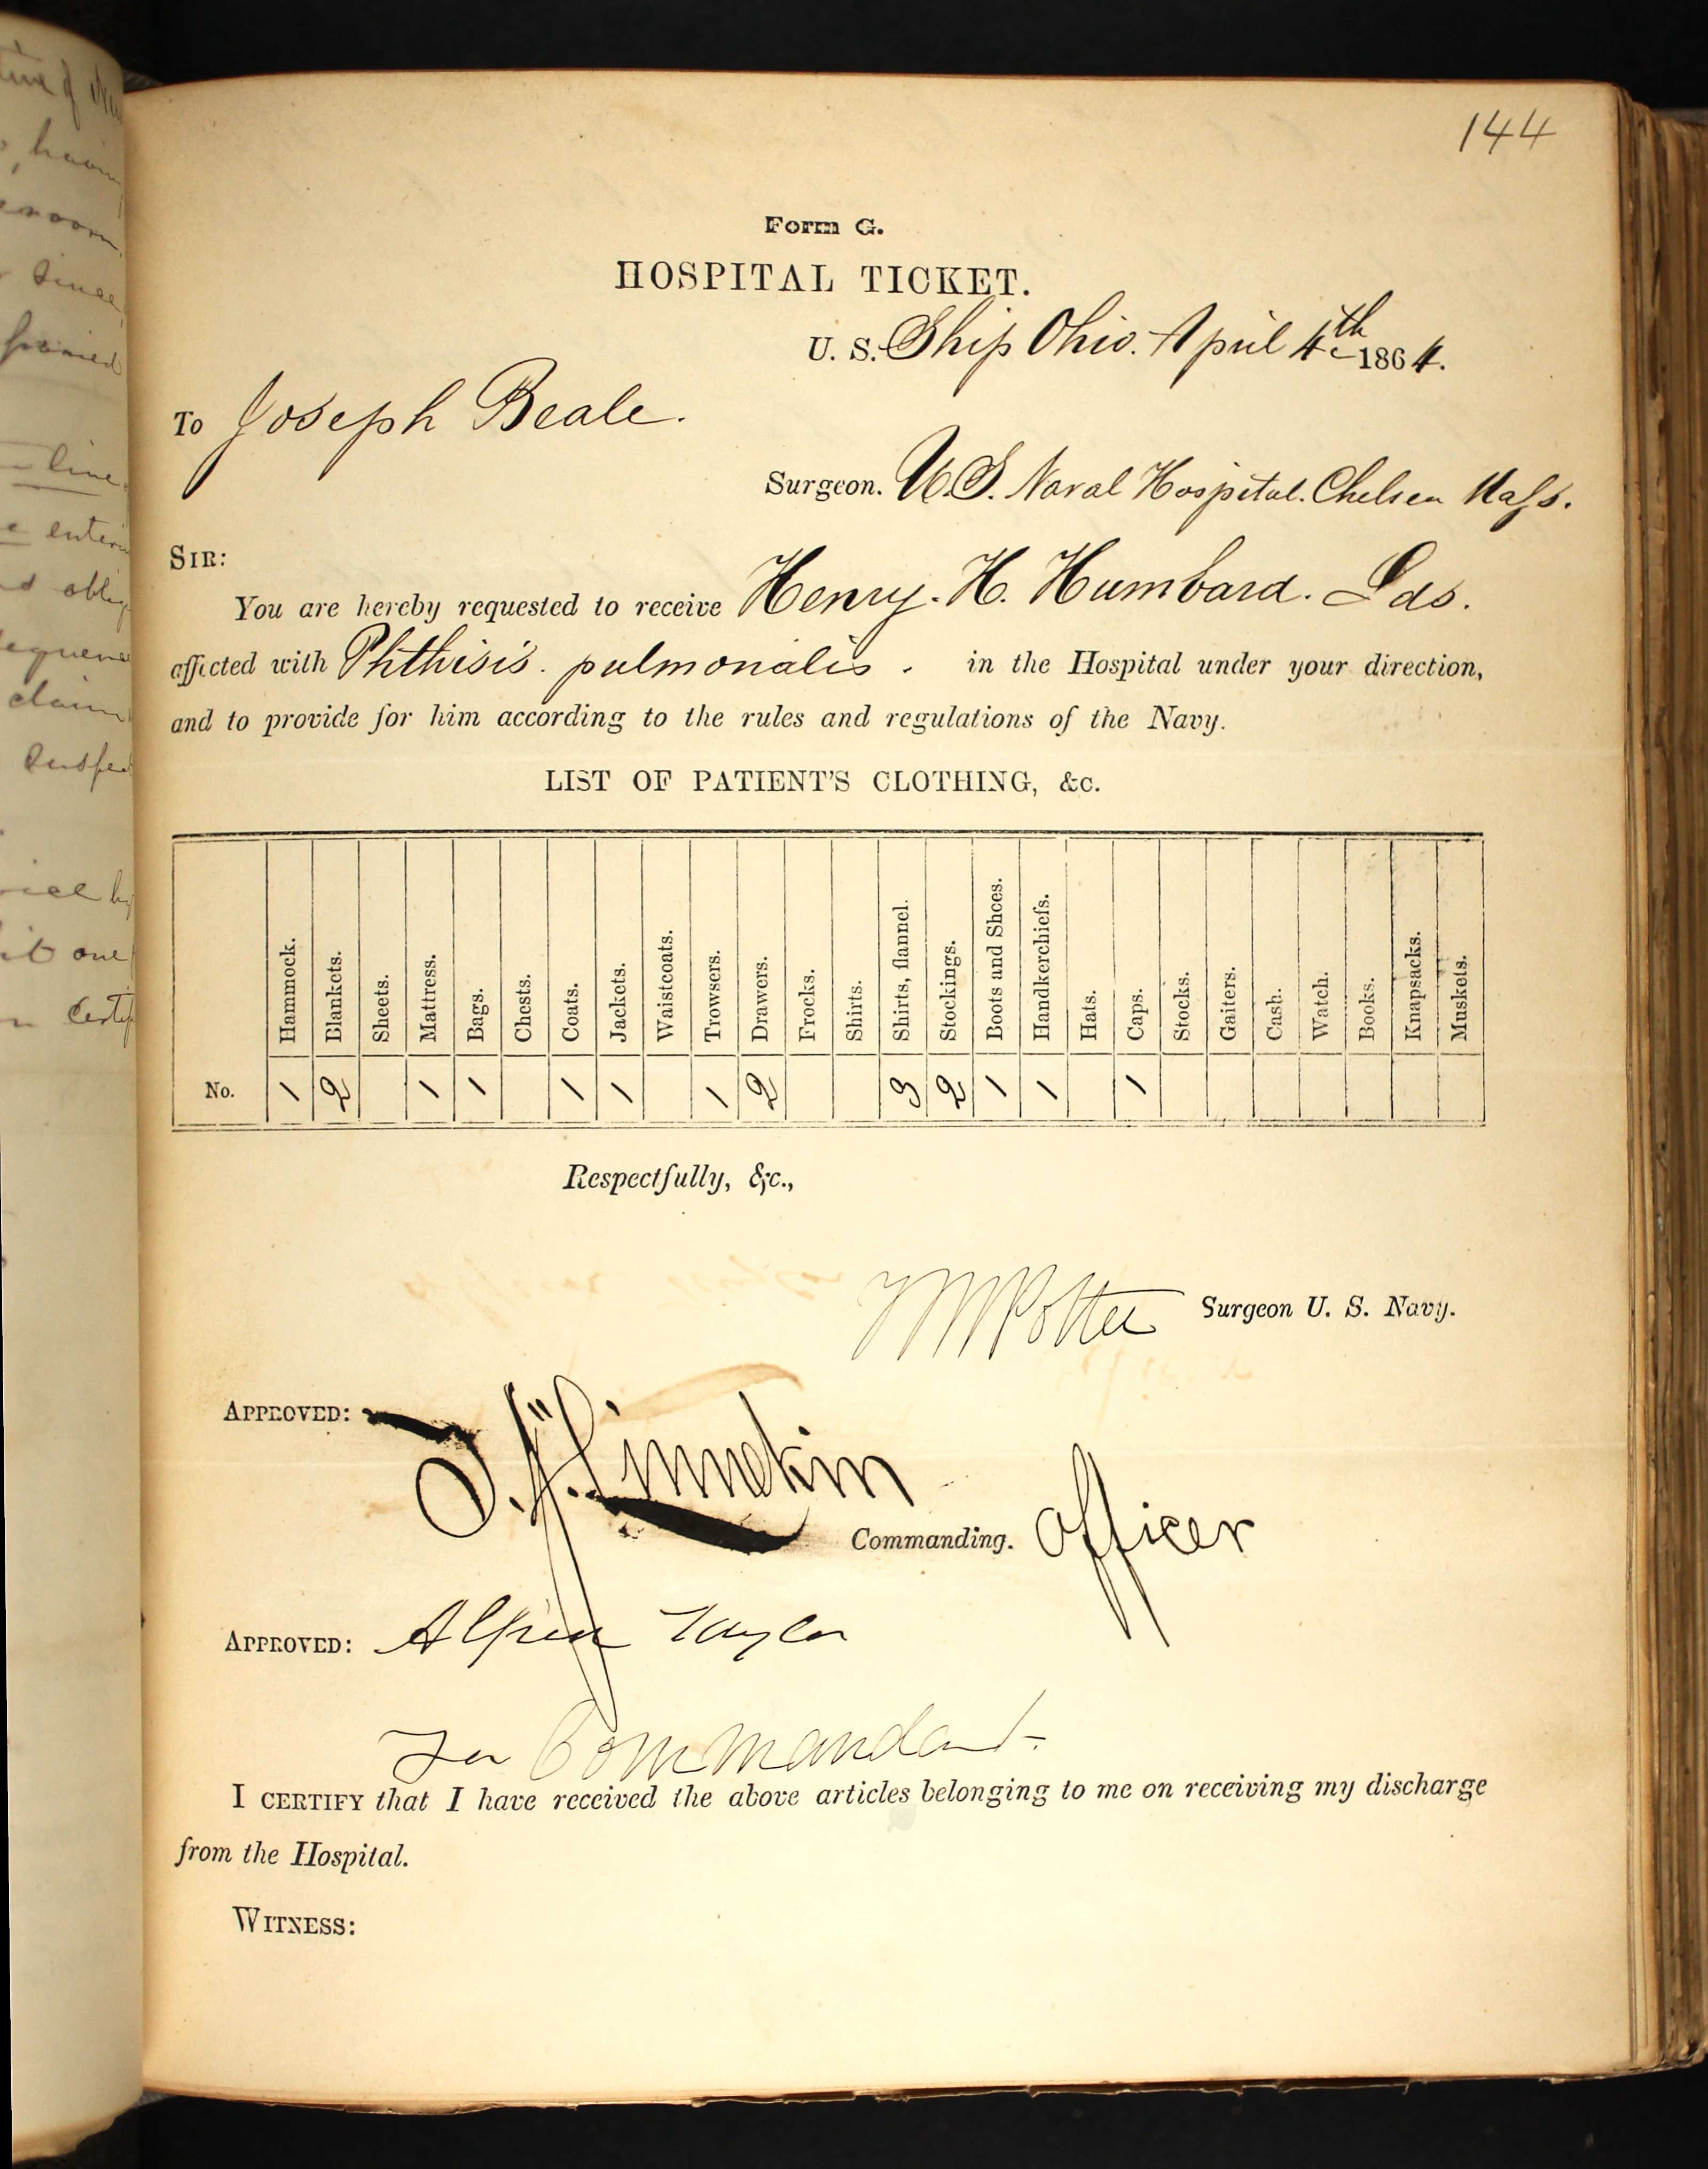 144
Form G.
HOSPITAL TICKET.
U. S. Ship Ohio. April 4th 1864.
To Joseph Beale.
Surgeon. U.S. Naval Hospital. Chelsea Mass.
SIR:
You are hereby requested to receive Henry. H. Humbard. Lds.
affected with Phthisis. pulmonalis. in the Hospital under your direction,
and to provide for him according to the rules and regulations of the Navy.
LIST OF PATIENT'S CLOTHING, &c.
Hammock. Blankets. Sheets. Mattress. Bags. Chests. Coats. Jackets. Waistcoats. Trowsers. Drawers. Frocks. Shirts. Shirts, flannel. Stockings. Boots and Shoes. Handkerchiefs. Hats. Caps. Stocks. Gaiters. Cash. Watch. Books. Knapsacks. Muskets.
No. 1 2 1 1 1 1 1 2 3 2 1 1 1
Respectfully, &c.,
Potter Surgeon U. S. Navy.
APPROVED:
Commanding. Officer
APPROVED: Taylor
for Commandant.
I CERTIFY that I have received the above articles belonging to me on receiving my discharge
from the Hospital.
WITNESS:
having
since
line
claim
one